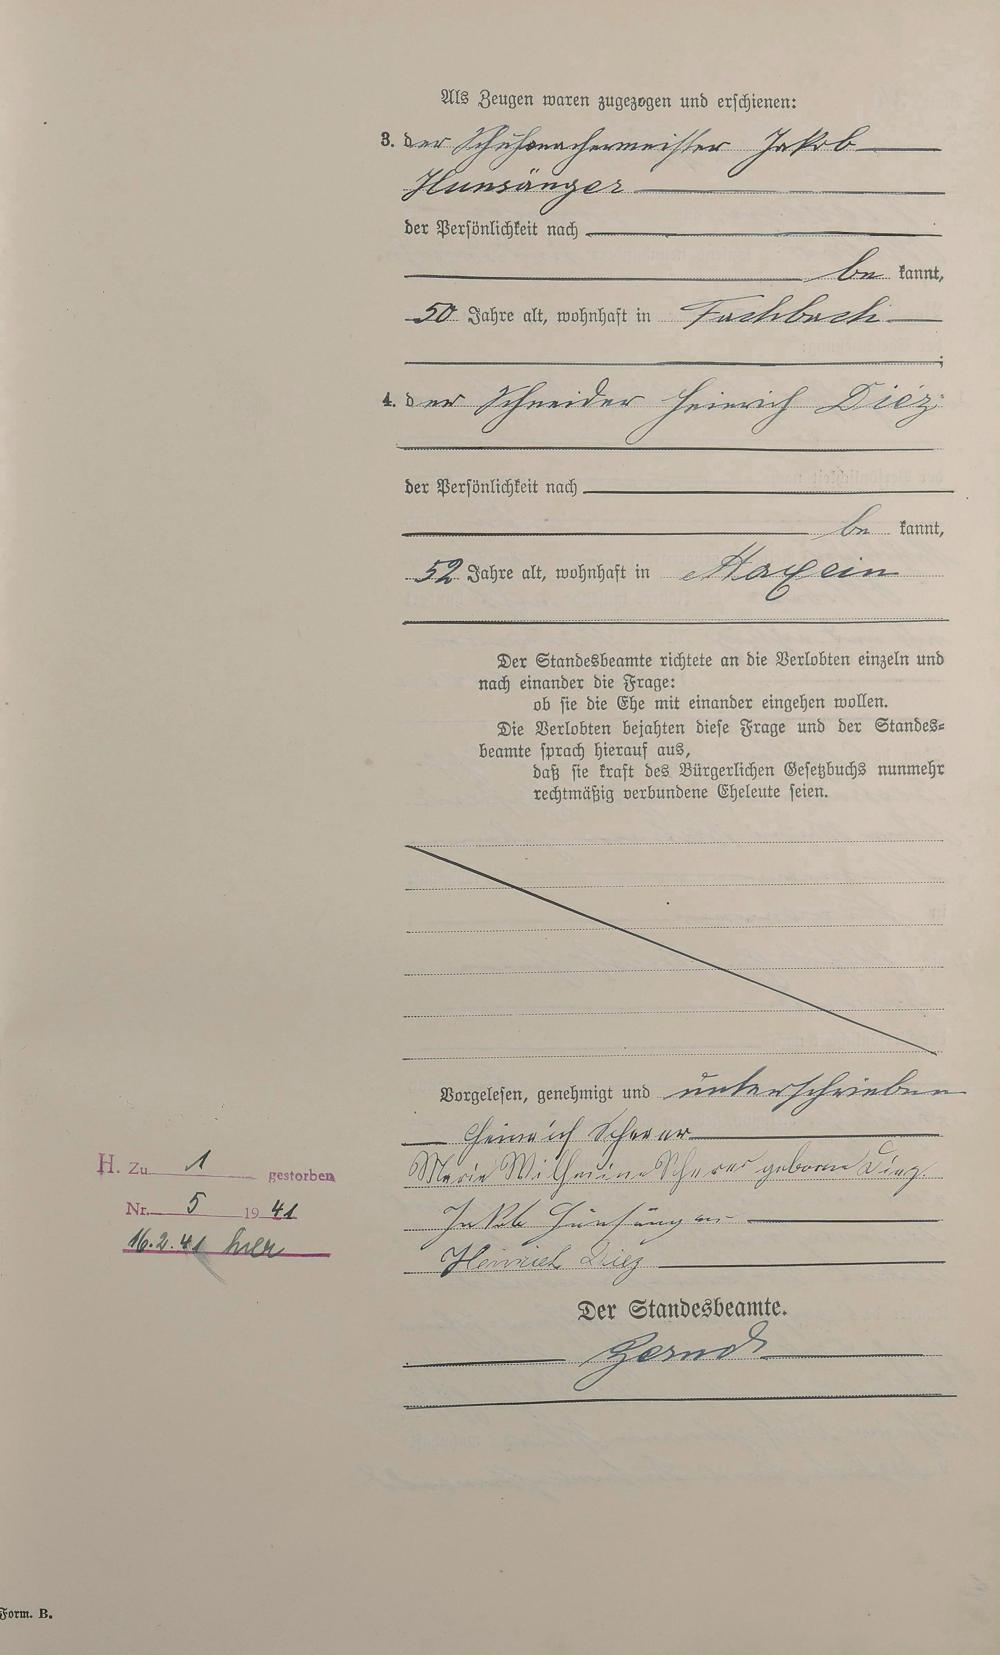 Als Zeugen waren zugezogen und erschienen:
3. der Schuhmachermeister Jakob
Hunsänger
der Persönlichkeit nach
be kannt,
50 Jahre alt, wohnhaft in Fachbach
;
4. der Schneider Heinrich Diez
der Persönlichkeit nach
be kannt,
52 Jahre alt, wohnhaft in Maxsein
Der Standesbeamte richtete an die Verlobten einzeln und
nach einander die Frage:
ob sie die Ehe mit einander eingehen wollen.
Die Verlobten bejahten diese Frage und der Standes-
beamte sprach hierauf aus,
daß sie kraft des Bürgerlichen Gesetzbuchs nunmehr
rechtmäßig verbundene Eheleute seien.
Vorgelesen, genehmigt und unterschrieben
Heinrich Scherer
Marie Wilhelmine Scherer geborne Diez.
Jakob Hunsänger
Heinrich Diez
H. Zu 1 gestorben
Nr. 5 1941
16.2.41 hier
Der Standesbeamte.
Form. B.